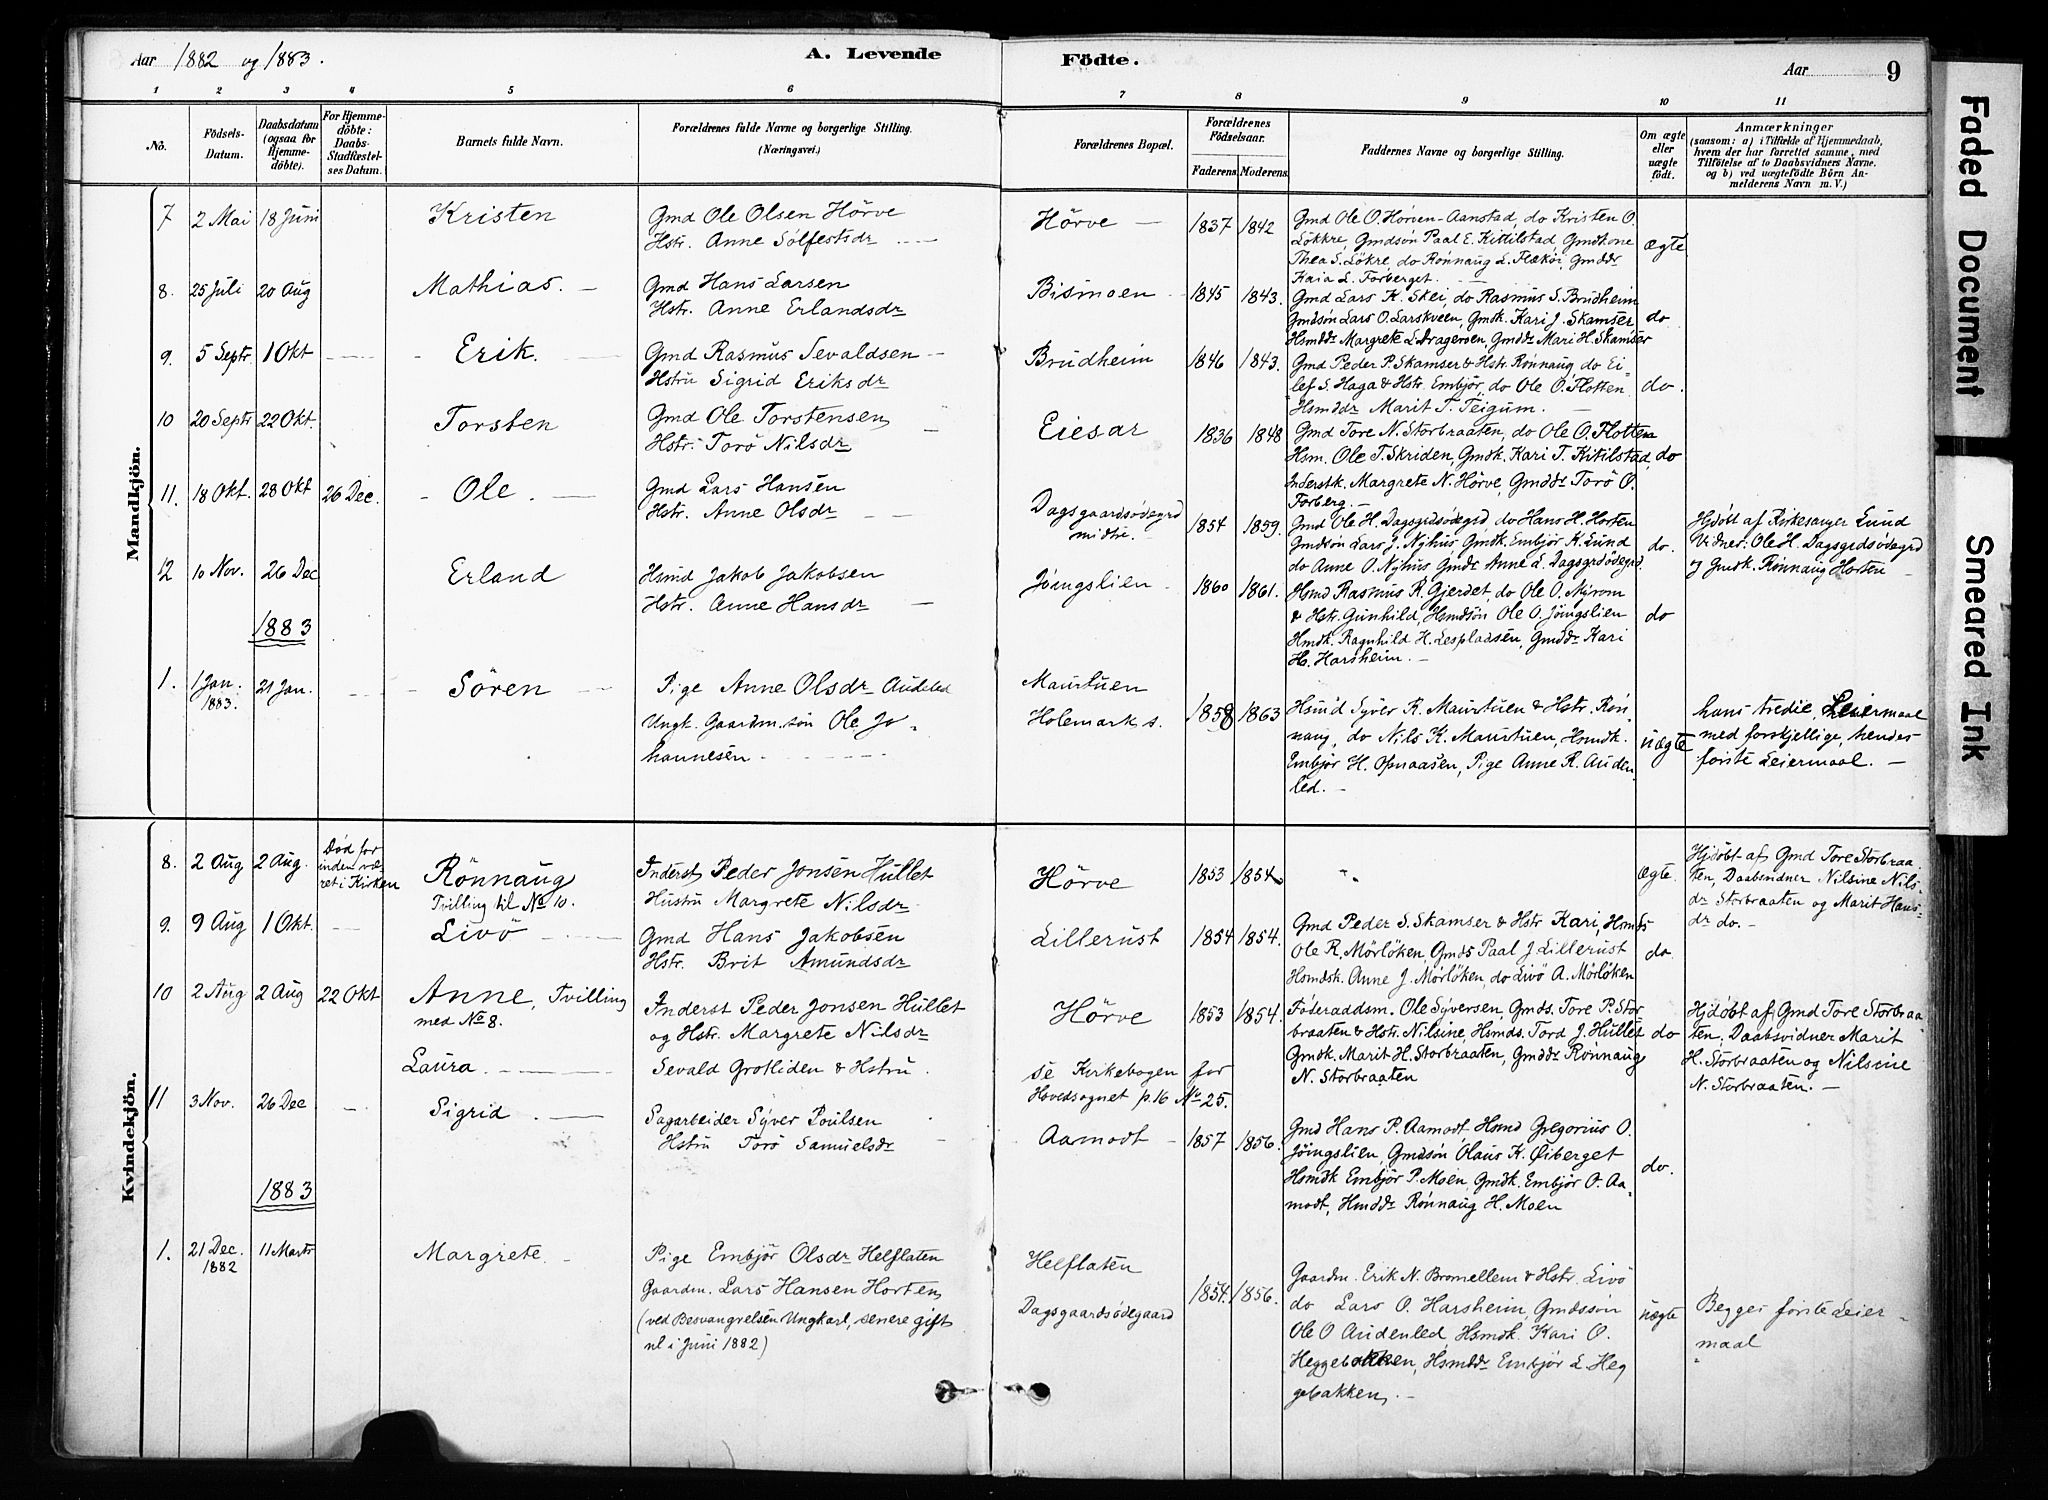 Aar 1882 og 1883.
A. Levende Födte.
Aar 9
1 2 3 4 5 6 7 8 9 10 11
No.
Födsels-Datum.
Daabsdatum (ogsaa for Hjemmedöbte).
For Hjemmedöbte: Daabs-Stadfæstelses Datum.
Barnets fulde Navn.
Forældrenes fulde Navne og borgerlige Stilling.
(Næringsvei.)
Forældrenes Bopæl.
Forældrenes Födselsaar.
Faderens Moderens
Faddernes Navne og borgerlige Stilling.
Om ægte eller uægte födt.
Anmærkninger
(saasom: a) i Tilfælde af Hjemmedaab,
hvem der har forrettet samme, med
Tilföielse af to Daabsvidners Navne.
og b) ved uægtefödte Börn An-
melderens Navn m. V.)
Mandkjön.
7 2 Mai 18 Juni Kristen
Gmd Ole Olsen Hörve
Hstr. Anne Sölfestsdr
Hörve 1837 1842
Gmd Ole O. Horven-Aanstad, do Kristen O.
Lökkre, Gmdsön Paal E. Kittilstad, Gmdkone
Thea S. Lökre, do Rönnaug L. Flæköi, Gmddr
Kaia L. Forberget.
ægte
8. 25 Juli 20 Aug Mathias.
Gmd Hans Larsen
Hstr. Anne Erlandsdr
Bismoen 1845 1843.
Gmd Lars K. Skei, do Rasmus S. Brudheim
Gmdsön Lars O. Larskveen, Gmdk. Kari J. Skamser
Hsmddr Margrete L. Drageroen, Gmddr Mari H. Skamser
do
9. 5 Septr. 1 Okt Erik.
Gmd Rasmus Sevaldsen
Hstru Sigrid Eriksdr
Brudheim 1846 1843.
Gmd Peder P. Skamser & Hstr Rönnaug do Ei-
lef S. Haga & Hstr. Embjör do Ole O. Flotten
Hsmddr Marit T. Teigum.
do.
10 20 Septr 22 Okt. Torsten
Gmd Ole Torstensen
Hstr. Torö Nilsdr
Eiesar 1836 1848
Gmd Tore N. Storbraaten, do Ole O. Flotten
Hsm. Ole T. Skriden, Gmdk. Kari T. Kittilstad,
Inderstk. Margrete N. Hörve, Gmddr Torö O.
Forberg.
do
11. 18 Okt. 28 Okt 26 Dec. Ole.
Gmd Lars Hansen
Hstr. Anne Olsdr
Dagsgaardsödegrd
midtre.
1854 1859.
Gmd Ole H. Dagsgrdsödegrd, do Hans H. Horten
Gmdsön Lars J. Nyhus, Gmdk. Embjör K. Lund
do Anne O. Nyhus Gmdr Anne L. Dagsgrdsödegrd.
do.
Hjdöbt af Kirkesanger Lund
Vidner: Ole H. Dagsgrdsödegrd
og Gmdk. Rönnaug Horten
12 10 Nov. 26 Dec Erland
Hsmd Jakob Jakobsen
Hstr. Anne Hansdr
Jöingslien 1860 1861.
Hsmd Rasmus R. Gjerdet, do Ole O. Nyrom
& Hstr. Gunhild, Hsmdsön Ole O. Jöingslien
Hmdk. Ragnhild H. Lespladsen, Gmddr Kari
H. Harsheim.
do
1883
1. 1 Jan. 1883. 21 Jan. Sören
Pige Anne Olsdr Audeled
Ungk. Gaardm.sön Ole Jo-
hannesen
Maurtuen
Holemark s.
1858 1863
Hsmd Syver R. Maurtuen & Hstr. Rön-
naug, do Nils K. Maurtuen, Hsmdk.
Embjör H. Opnaasen, Pige Anne R. Auden
led.
uægte
hans tredie Leiermaal
med forskjellige, hendes
förste Leiermaal.
Kvindekjön.
8. 2 Aug 2 Aug.
Död for
inden væ
ret i Kirken
Rönnaug
Tvilling til No 10.
Inderst Peder Jonsen Hullet
Hustru Margrete Nilsdr
Hörve 1853 1854
ægte.
Hjdöbt af Gmd Tore Storbraa
ten, Daabsvidner Nilsine Nils-
dr Storbraaten og Marit Hans-
dr do.
9. 9 Aug 1 Okt. Livö
Gmd Hans Jakobsen
Hstr. Brit Amundsdr
Lillerust 1854 1854.
Gmd Peder S. Skamser & Hstr Kari, Hsmds
Ole R. Mörlöken, Gmds Paal J Lillerust
Hsmdsk. Anne J. Mörlöken, do Livö A. Mörlöken
do
10 2 Aug 2 Aug 22 Okt Anne, Tvilling
med No 8.
Inderst Peder Jonsen Hullet
og Hstr. Margrete Nilsdr
Hörve 1853 1854.
Föderaadsm. Ole Syversen, Gmds. Tore P. Stor
braaten & Hstr. Nilsine, Hsmds. Tord J. Hullet
Gmdk. Marit H. Storbraaten, Gmddr Rönnaug
N. Storbraaten
do
Hjdöbt af Gmd Tore Storbraa-
ten, Daabsvidner Marit
H. Storbraaten og Nilsine
N. Storbraaten.
Laura.
Sevald Grotliden & Hstru.
se Kirkebogen for
Hovedsognet p.16 No 25.
11 3 Nov. 26 Dec Sigrid
Sagarbeider Syver Poulsen
Hstru Torö Samuelsdr
Aamodt 1857 1856.
Gmd Hans P. Aamodt, Hsmd Gregorius O.
Jöingslien, Gmdsön Olaus K. Öiberget
Hsmdk Embjör P. Moen, Gmdk. Embjör O. Aa-
modt, Hmddr Rönnaug H. Moen
do.
1883
1. 21 Dec. 1882 11 Marts Margrete
Pige Embjör Olsdr Helflaten
Gaardm. Lars Hansen Horten
(ved Besvangrelsen Ungkarl, senere gift
nl i Juni 1882)
Helflaten
Dagsgaardsödegaard
1854. 1856.
Gaardm. Erik N. Bromellem & Hstr. Livö
do Lars O. Harsheim, Gmdssön
Ole O Audenled Hsmdk. Kari O.
Heggebakken, Hsmddr Embjör L. Heg
gebakken.
uægte
Begges förste Leier-
maal
Faded Document
Smeared Ink